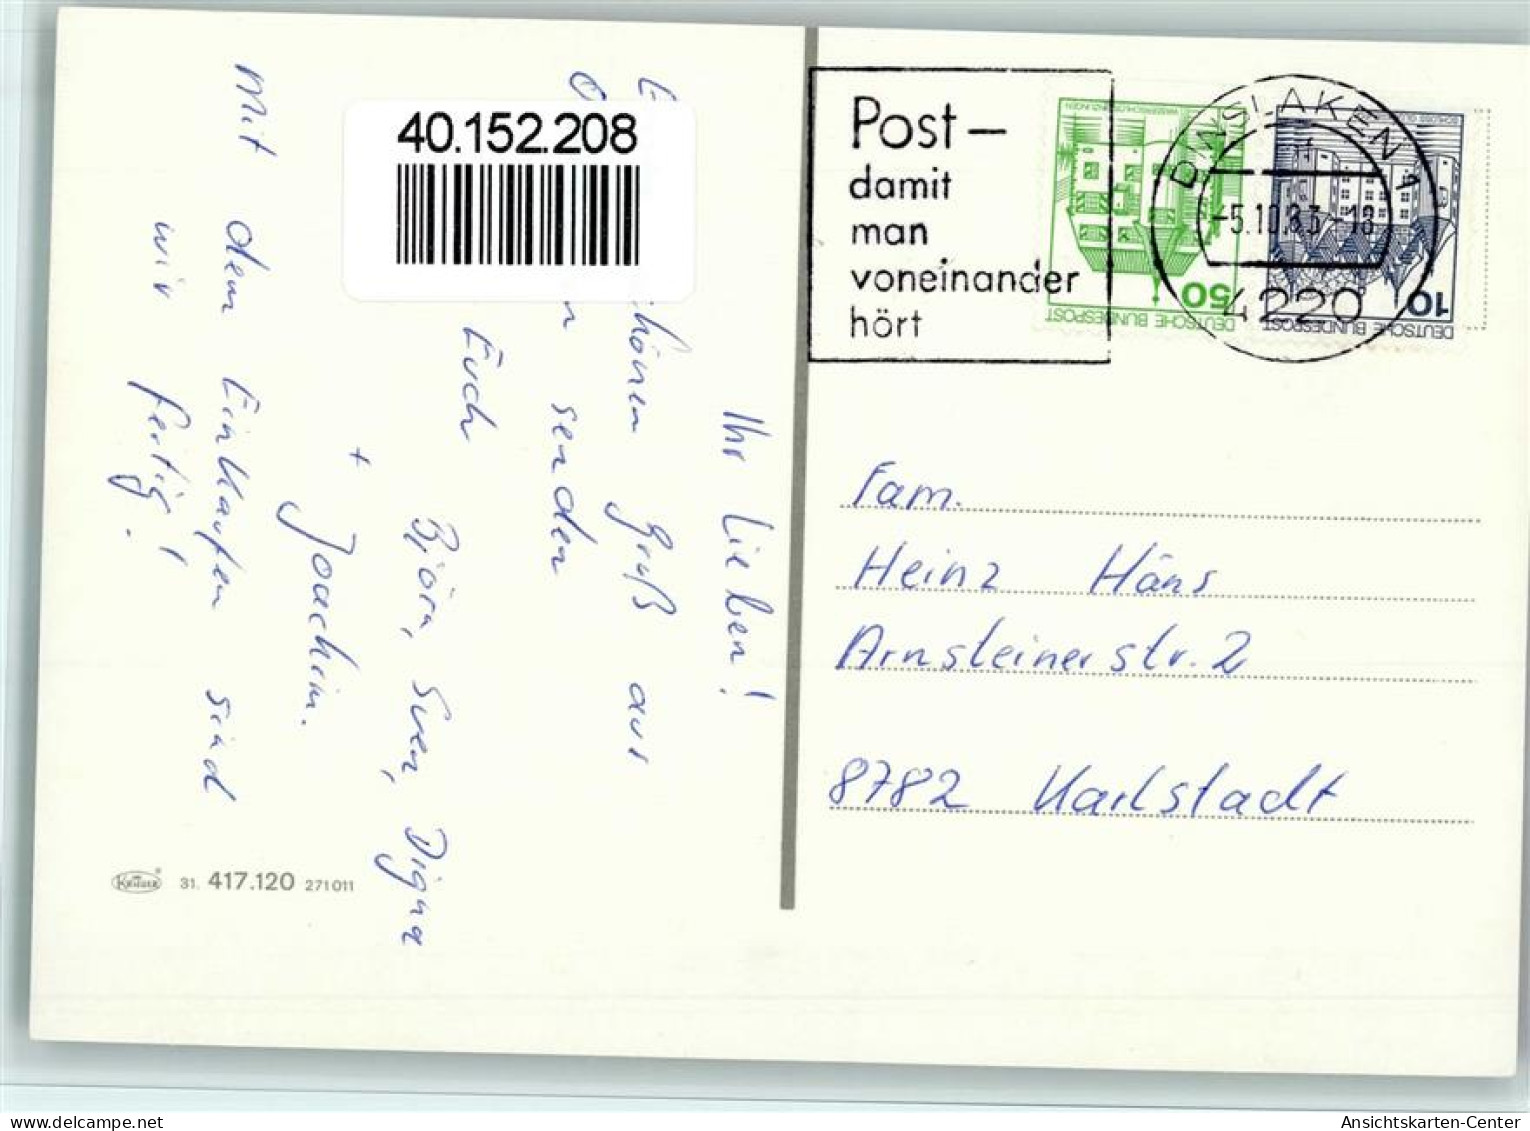 40.152.208
Ihr Lieben!
schönen Gruß aus
senden
Euch
Björn, Sven, Digna
+
Joachim.
Mit dem Einkaufen sind
wir fertig!
KRÜGER 31. 417.120 271011
Post –
damit
man
voneinander
hört
50
DEUTSCHE BUNDESPOST
10
DEUTSCHE BUNDESPOST
DINSLAKEN 1
-5.10.83-18
4220
Fam.
Heinz Häns
Arnsteinerstr. 2
8782 Karlstadt
oldthing.de
Ansichtskarten-Center